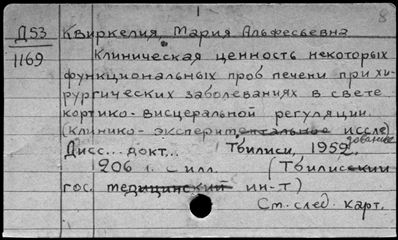 8
Д53 Квиркелия, Мария Алфесьевна
1169 Клиническая ценность некоторых
функциональных проб печени при хи-
рургических заболеваниях в свете
кортико-висцеральной регуляции.
(клинико-экспериментальное иссле)
дование
Дисс... докт... Тбилиси, 1952.
206 л. с илл. (Тбилисский
гос. медицинский ин-т)
См. след. карт.